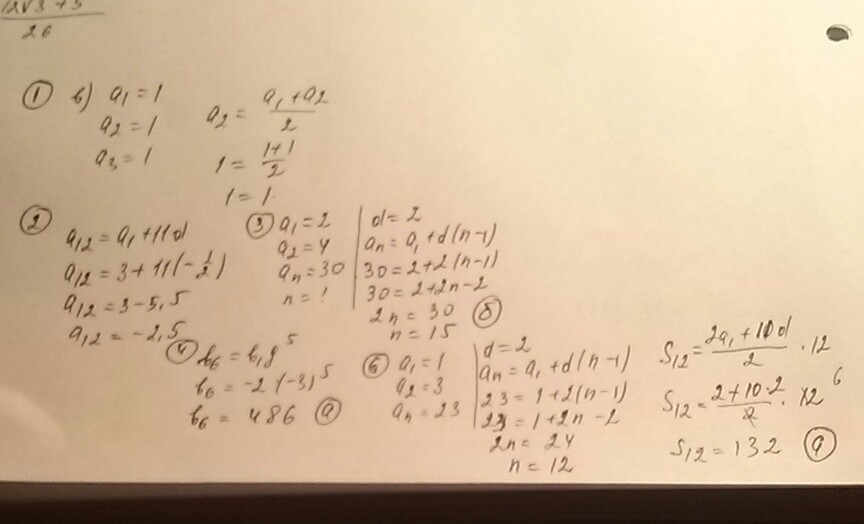 12√3 + 3
26
① в) a₁ = 1
a₂ = 1
a₃ = 1
a₂ = (a₁ + a₂)/2
1 = (1+1)/2
1 = 1
② a₁₂ = a₁ + 11d
a₁₂ = 3 + 11(-1/2)
a₁₂ = 3 - 5,5
a₁₂ = -2,5
③ a₁ = 2
a₂ = 4
aₙ = 30
n = ?
d = 2
aₙ = a₁ + d(n-1)
30 = 2 + 2(n-1)
30 = 2 + 2n - 2
2n = 30
n = 15 б
④ b₆ = b₁q⁵
b₆ = -2(-3)⁵
b₆ = 486 а
⑥ a₁ = 1
a₂ = 3
aₙ = 23
d = 2
aₙ = a₁ + d(n-1)
23 = 1 + 2(n-1)
23 = 1 + 2n - 2
2n = 24
n = 12
S₁₂ = (2a₁ + 10d)/2 · 12
S₁₂ = (2 + 10·2)/2 · 12 6
S₁₂ = 132 а